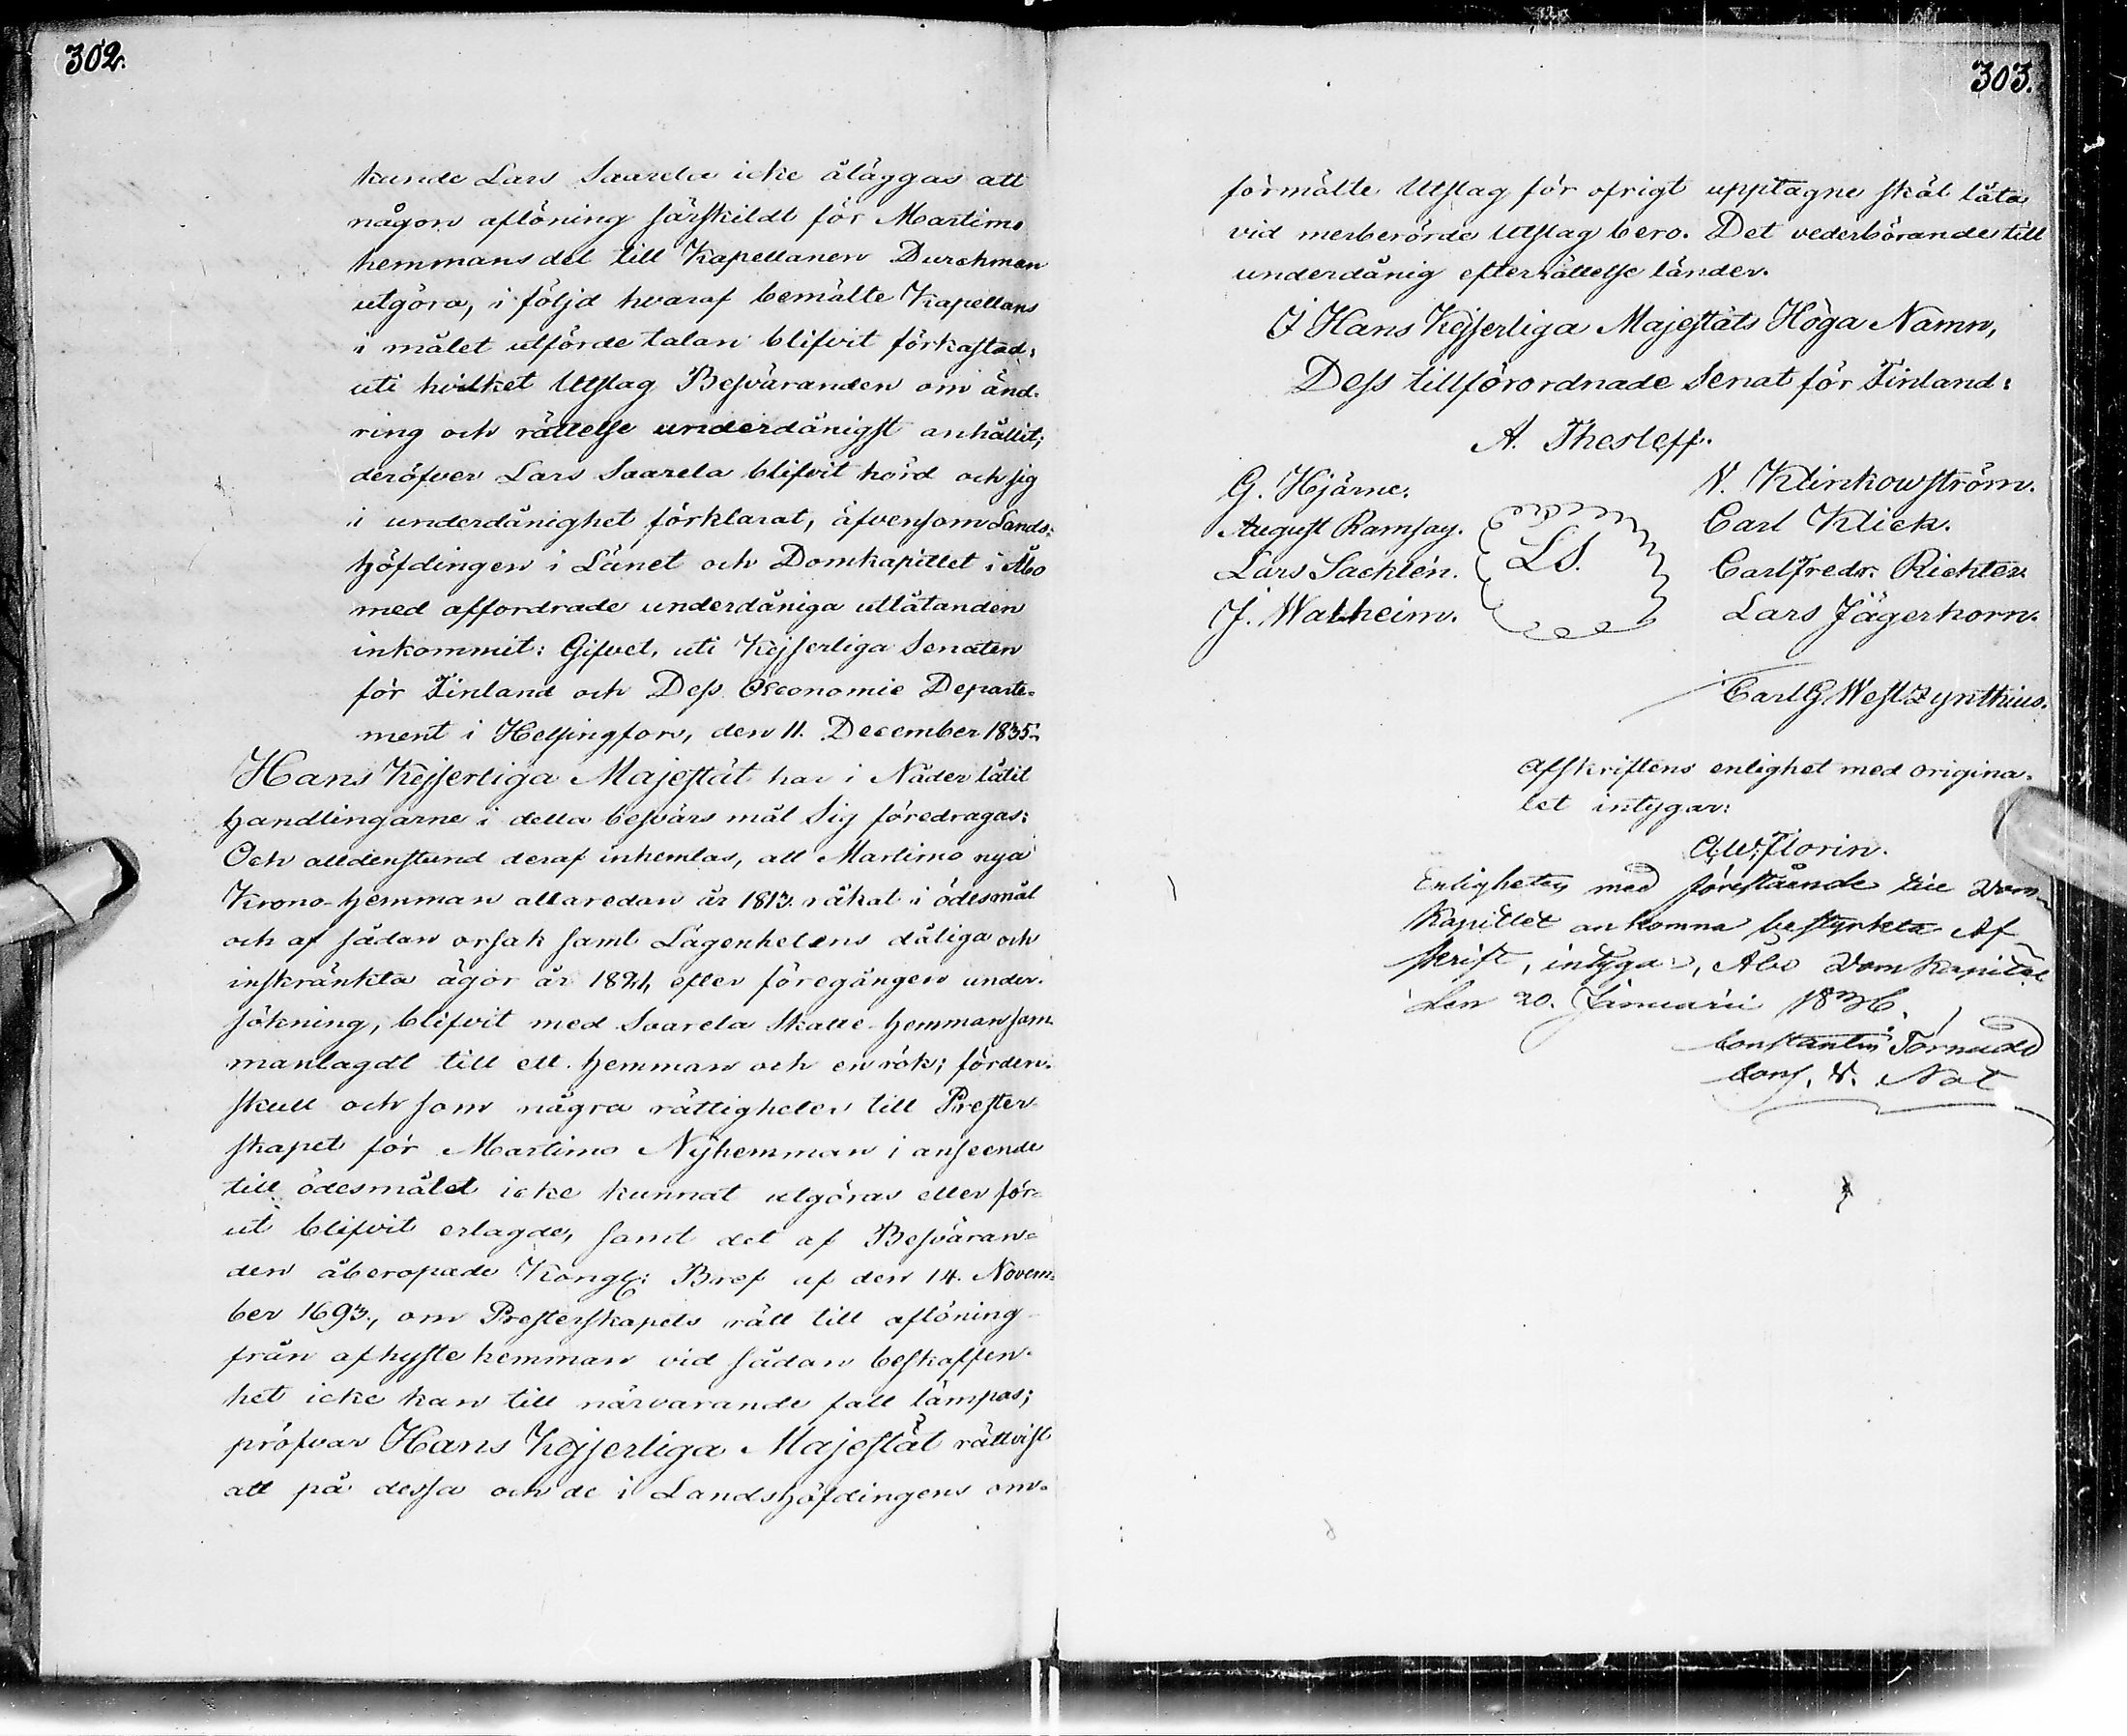 302.
kunde Lars Saarela icke åläggas att
någon aflöning särskildt för Martimo
hemmansdel till Kapellanen Durchman
utgöra, i följd hvaraf bemälte Kapellans
i målet utförde talan blifvit förkastad;
uti hvilket Utslag Besväranden om änd-
ring och rättelse underdånigst anhållit;
deröfver Lars Saarela blifvit hörd och sig
i underdånighet förklarat, äfvensom Lands-
höfdingen i Länet och Domkapitlet i Åbo
med affordrade underdåniga utlåtanden
inkommit: Gifvet, uti Kejserliga Senaten
för Finland och Dess Oeconomie Departe-
ment i Helsingfors, den 11. December 1835.
Hans Kejserliga Majestät har i Nåder låtit
handlingarne i detta besvärs mål Sig föredragas:
Och alldenstund deraf inhemtas, att Martimo nya
Krono-hemman allaredan år 1813 råkat i ödesmål
och af sådan orsak samt Lägenhetens dåliga och
inskränkta ägor år 1821, efter föregången under-
sökning, blifvit med Saarela Skatte-hemman sam-
manlagdt till ett hemman och en rök; förden-
skull och som några rättigheter till Prester-
skapet för Martimo Nyhemman i anseende
till ödesmålet icke kunnat utgöras eller för-
ut blifvit erlagde, samt det af Besväran-
den åberopade Kongl: Bref af den 14. Novem-
ber 1693., om Presterskapets rätt till aflöning
från afhyste hemman vid sådan beskaffen-
het icke kan till närvarande fall lämpas;
pröfvar Hans Kejserliga Majestät rättvist
att på dessa och de i Landshöfdingens om-
303.
förmälte Utslag för öfrigt upptagne skäl låta
vid merberörde Utslag bero. Det vederbörande till
underdånig efterrättelse länder.
I Hans Kejserliga Majestäts Höga Namn,
Dess tillförordnade Senat för Finland:
A. Thesleff.
G. Hjärne. N. Klinkowström.
August Ramsay. Carl Klick.
Lars Sacklén. LS. Carl Fredr. Richter.
J. Walheim. Lars Jägerhorn.
Carl G Westzynthius.
Afskriftens enlighet med origina-
let intygar:
A. W. Florin.
Enligheten med förestående till Dom-
kapitlet ankomna bestyrkta Af-
skrift, intygar, Åbo Domkapitel
den 20. Januarii 1836.
Constantin Törnudd
Cons. V. Not